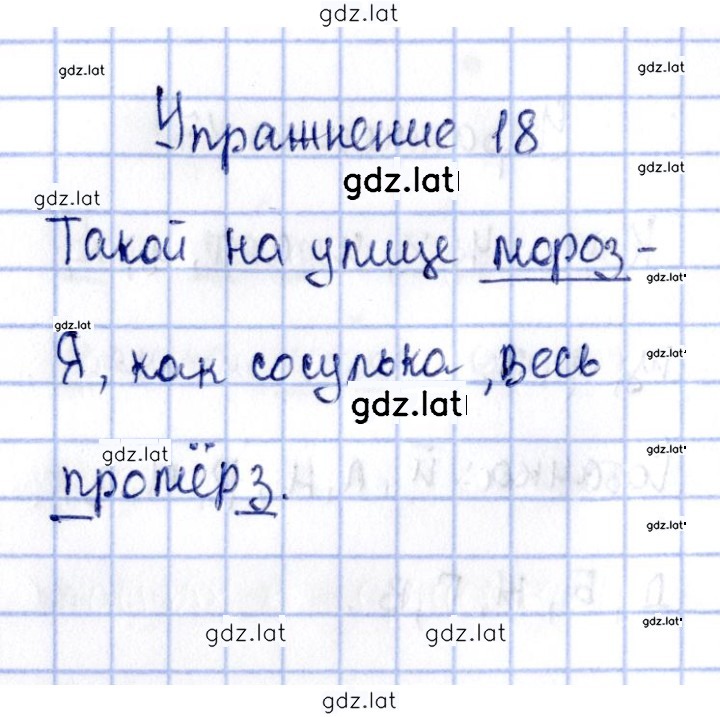 gdz.lat
gdz.lat
gdz.lat
Упражнение 18
gdz.lat
gdz.lat
gdz.lat
Такой на улице мороз-
gdz.lat
gdz.lat
Я, как сосулька, весь
gdz.lat
gdz.lat
gdz.lat
gdz.lat
промёрз.
gdz.lat
gdz.lat
gdz.lat
gdz.lat
gdz.lat